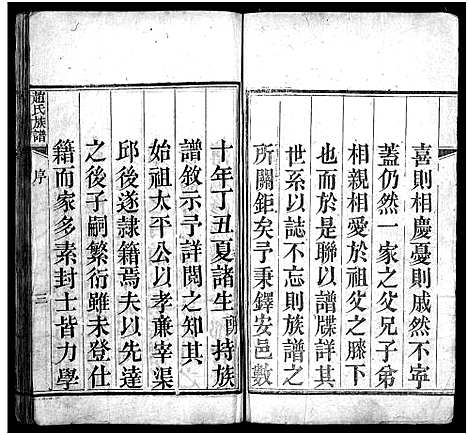 喜則相慶憂則戚然不寧
蓋仍然一家之父兄子弟
相親相愛於祖父之膝下
也而於是聯以譜牒詳其
世系以誌不忘則族譜之
所關鉅矣予秉鐸安邑數
十年丁丑夏諸生持族
譜敘示予詳閱之知其
始祖太平公以孝廉宰渠
邱後遂隸籍焉夫以先達
之後子嗣繁衍雖未登仕
籍而家多素封士皆力學
趙氏族譜
序
三